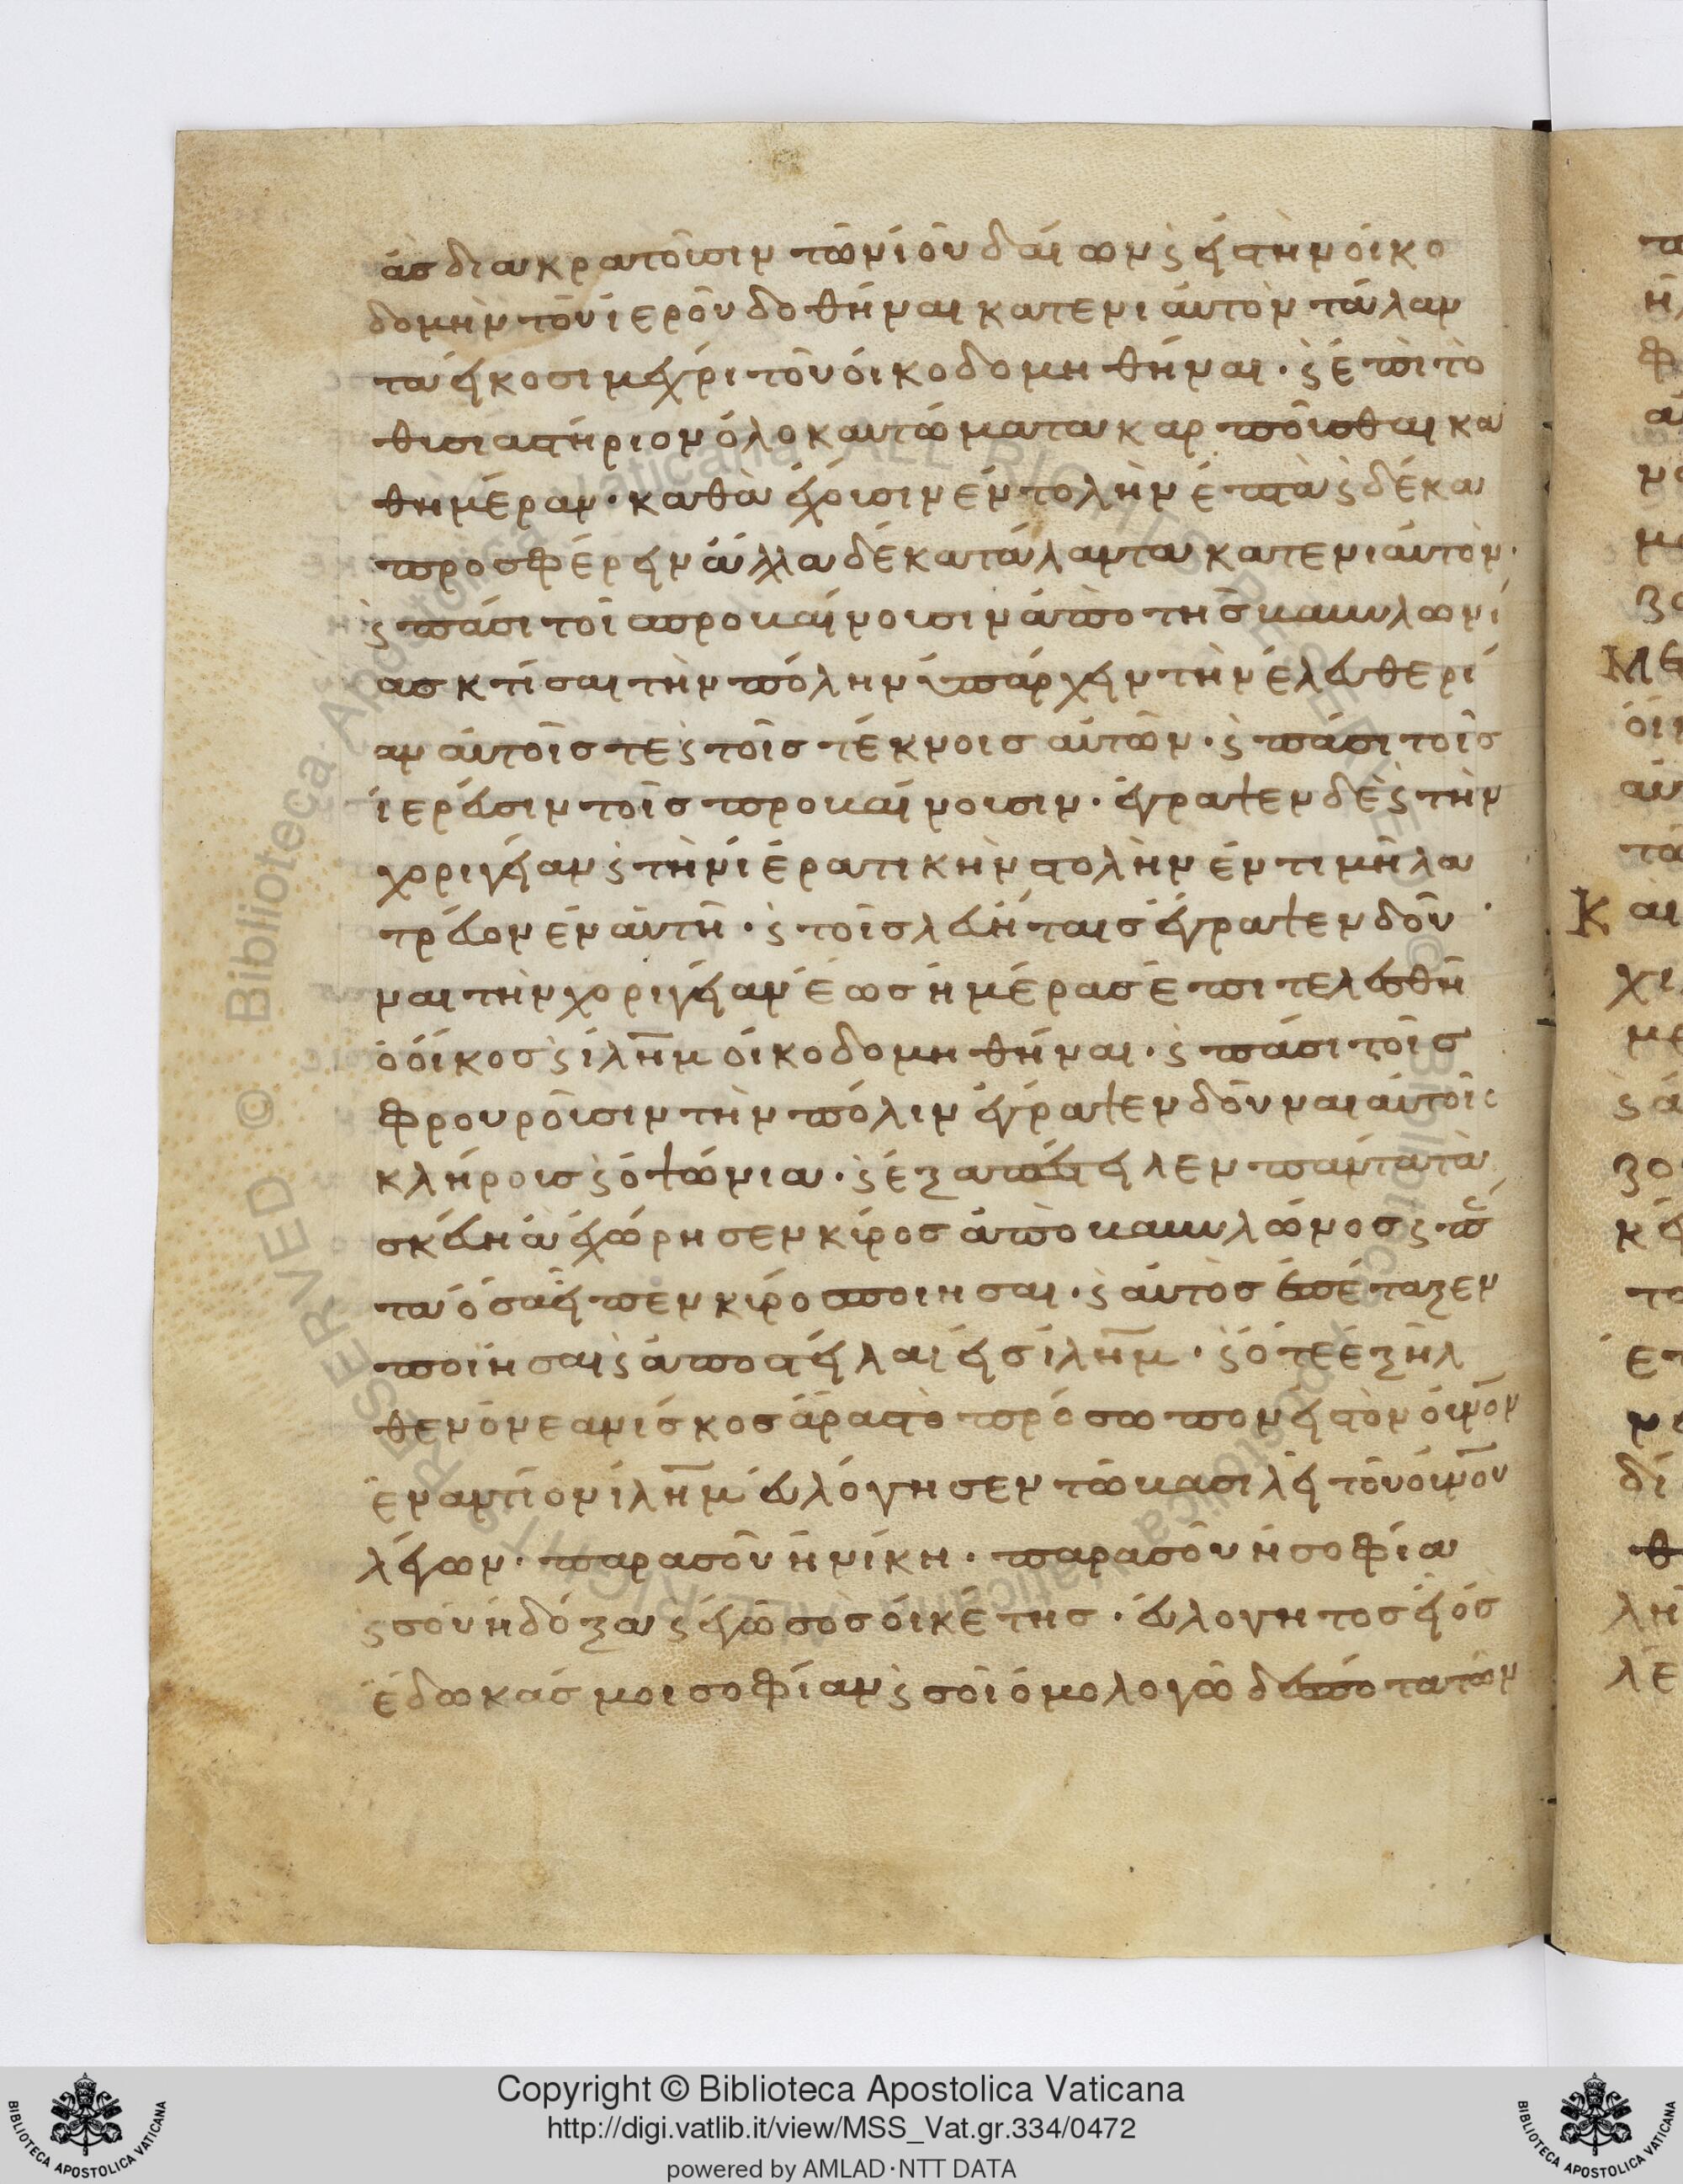 ἃσ διακρατοῦσιν τῶν ἰουδαίων ϛ εἰς τὴν οἰκο
δομὴν τοῦ ἱεροῦ δοθῆναι κατενιαυτὸν τάλαν
τα εἴκοσι μέχρι τοῦ οἰκοδομηθῆναι · ϛ ἐπὶ τὸ
θυσιαστήριον ὁλοκαυτώματα καρποῦσθαι κα
θημέραν · καθὰ ἔχουσιν ἐντολὴν ἑπτὰ ϛ δέκα
προσφέρειν ἄλλα δέκα τάλαντα κατενιαυτὸν ·
ϛ πᾶσι τοῖ προσβαίνουσιν ἀπὸ τῆσ βαβυλωνί
ασ κτίσαι τὴν πόλην ὑπάρχειν τὴν ἐλευθερί
αν αὐτοῖσ τὲ ϛ τοῖσ τέκνοισ αὐτῶν · ϛ πᾶσι τοῖσ
ἱερεῦσιν τοῖσ προσβαίνουσιν · ἔγραψεν δὲ ϛ τὴν
χοριγείαν ϛ τὴν ἱερατικὴν στολὴν ἐν τίνι λα
τρεύον ἐν αὐτῆ · ϛ τοῖσ λευίταισ ἔγραψεν δοῦ
ναι τὴν χοριγείαν ἕωσ ἡμέρασ ἐπιτελεσθῆ
ὁ οἶκοσ ϛ ἰλῆμ οἰκοδομηθῆναι · ϛ πᾶσι τοῖσ
φρουροῦσιν τὴν πόλιν ἔγραψεν δοῦναι αὐτοῖς
κλήρουσ ϛ ὀψώνια · ϛ ἐξαπέστειλεν πάντα τὰ
σκεύη ἃ ἐχώρησεν κῦροσ ἀπὸ βαβυλῶνοσ ϛ πάν
τα ὅσα εἶπεν κῦροσ ποιῆσαι · ϛ αὐτὸσ ἐπέταξεν
ποιῆσαι ϛ ἀποστεῖλαι εἰσ ἰλῆμ · ϛ ὅτε ἐξῆλ
θεν ὁ νεανίσκοσ ἄρασ τὸ πρόσωπον εἰσ τὸν οὐνὸν
ἐναντίον ἰλῆμ εὐλόγησεν τῶ βασιλεῖ τοῦ οὐνοῦ
λέγων · παρὰ σοῦ ἡ νίκη · παρὰ σοῦ ἡ σοφία
ϛ σοῦ ἡ δόξα ϛ ἐγὼ σὸσ οἰκέτησ · εὐλογητοσ εἶ ὃσ
ἔδωκάσ μοι σοφίαν ϛ σοὶ ὁμολογῶ δέσποτα τῶν
Copyright © Biblioteca Apostolica Vaticana
http://digi.vatlib.it/view/MSS_Vat.gr.334/0472
powered by AMLAD·NTT DATA